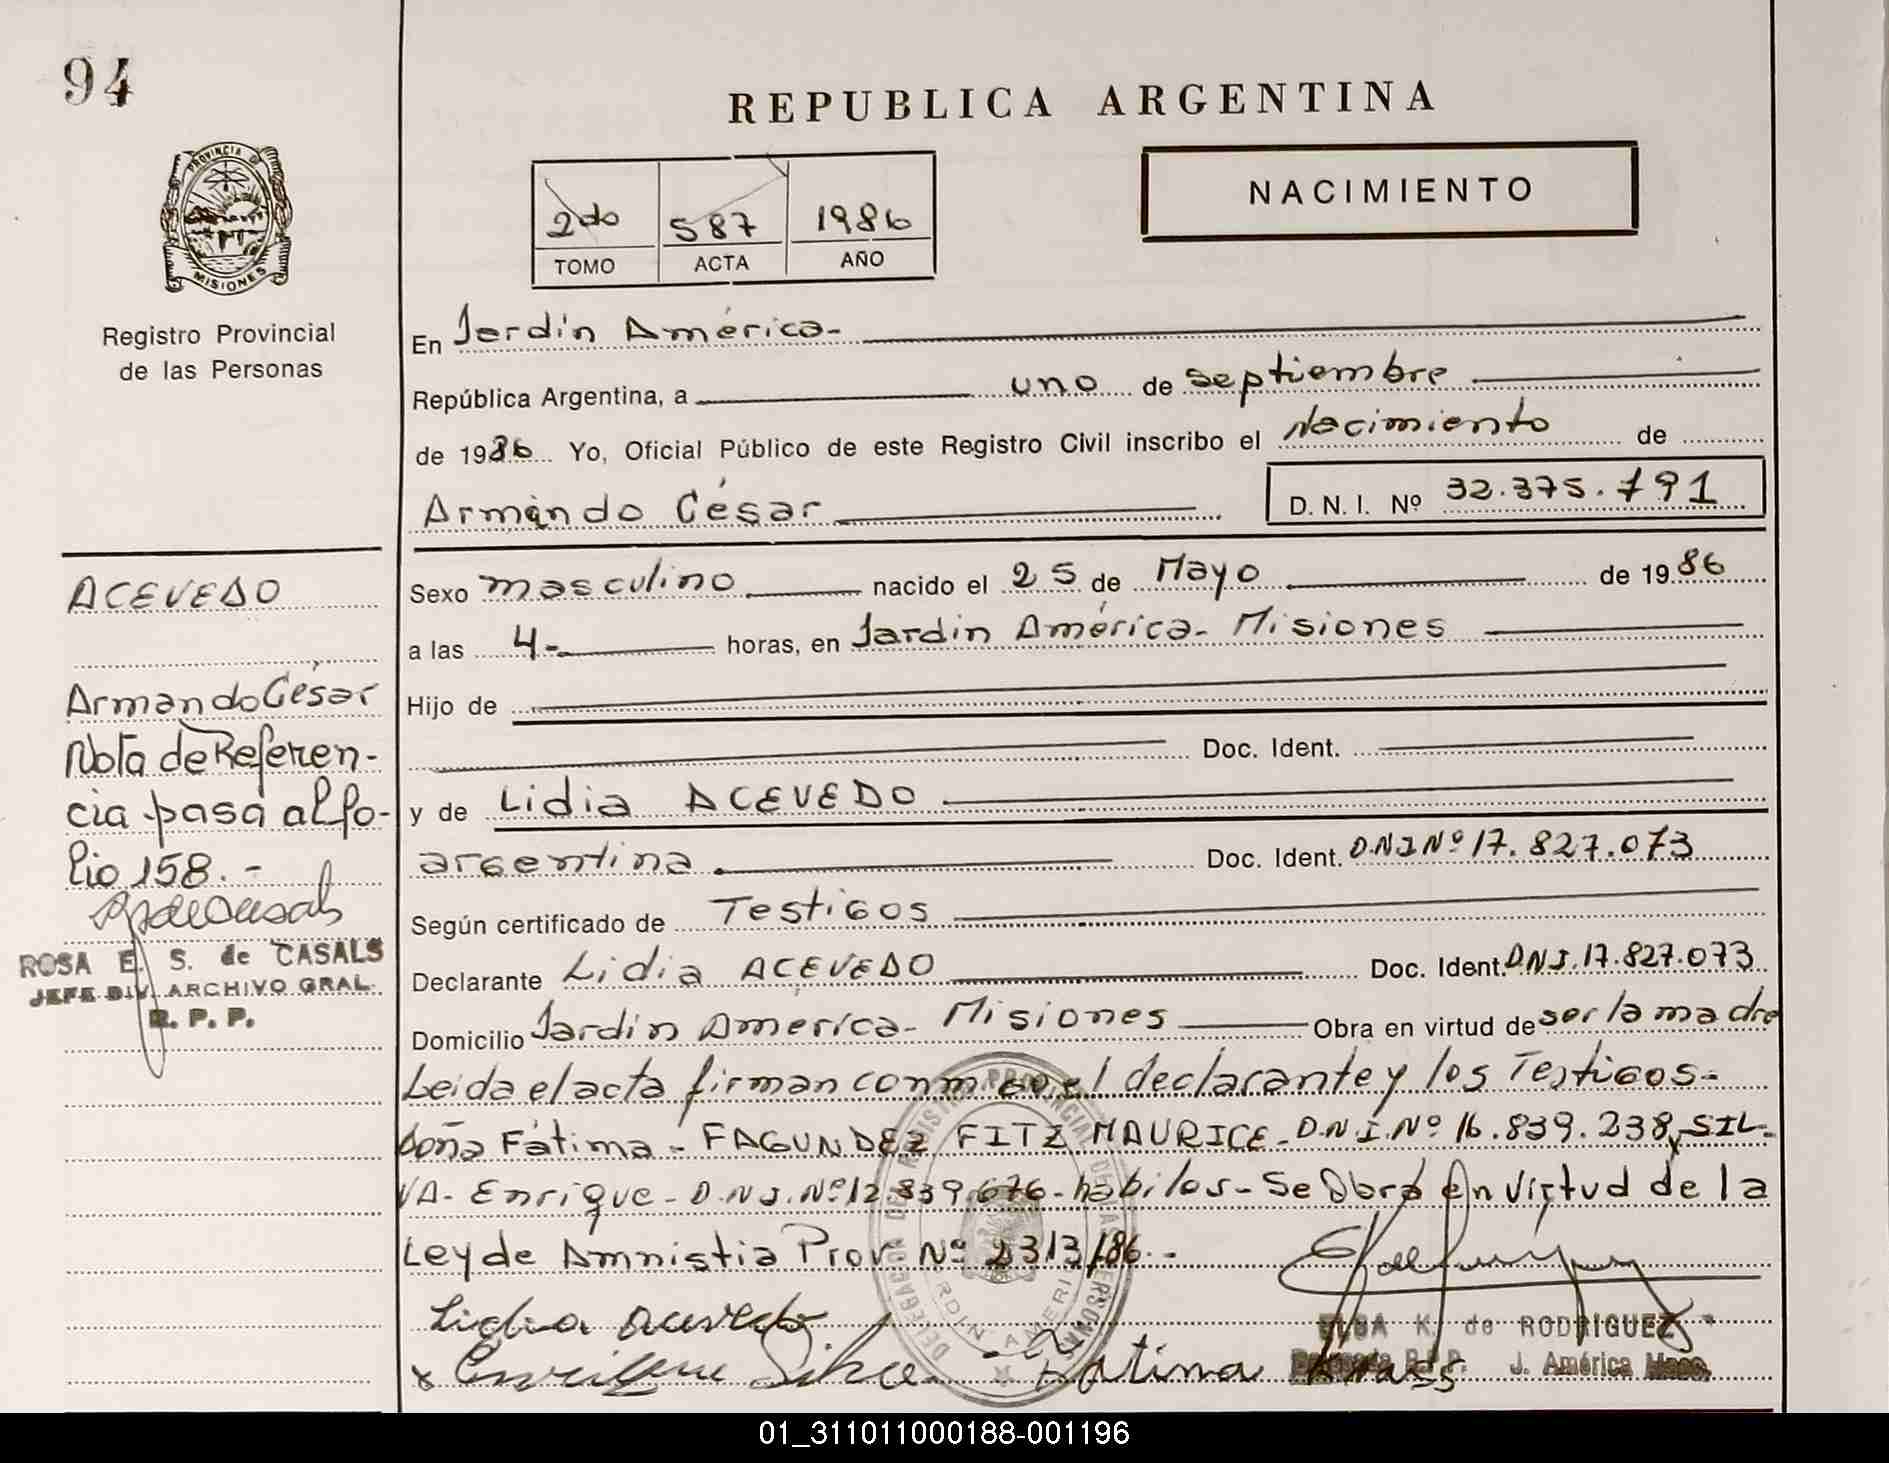 94
REPUBLICA ARGENTINA
PROVINCIA DE
MISIONES
2do 587 1986
TOMO ACTA AÑO
NACIMIENTO
Registro Provincial
de las Personas
En Jardín América-
República Argentina, a uno de septiembre
de 1986 Yo, Oficial Público de este Registro Civil inscribo el Nacimiento de
Armando César D. N. I. Nº 32.375.791
ACEVEDO
Armando César
Nota de Referen-
cia pasa al fo-
lio 158.-
ROSA E. S. de CASALS
JEFE DIV. ARCHIVO GRAL.
R. P. P.
Sexo masculino nacido el 25 de Mayo de 1986
a las 4- horas, en Jardín América- Misiones
Hijo de
Doc. Ident.
y de Lidia ACEVEDO
argentina Doc. Ident. D.N.I Nº 17.827.073
Según certificado de Testigos
Declarante Lidia ACEVEDO Doc. Ident. D.N.I. 17.827.073
Domicilio Jardín America- Misiones Obra en virtud de ser la madre
Leida el acta firman conmigo el declarante y los Testigos-
doña Fátima- FAGUNDEZ FITZ MAURICE- D.N.I. Nº 16.839.238 y SIL-
VA- Enrique- D.N.I. Nº 12.839.676- habiles- Se Obra en virtud de la
Ley de Amnistia Prov. Nº 2313/86.-
DELEGACION DEL REGISTRO PROVINCIAL DE LAS PERSONAS
JARDIN AMERICA
Lidia acevedo
x Enrique Silva Fatima
ELSA K. de RODRIGUEZ
Delegada R.P.P. J. América Mnes.
01_311011000188-001196